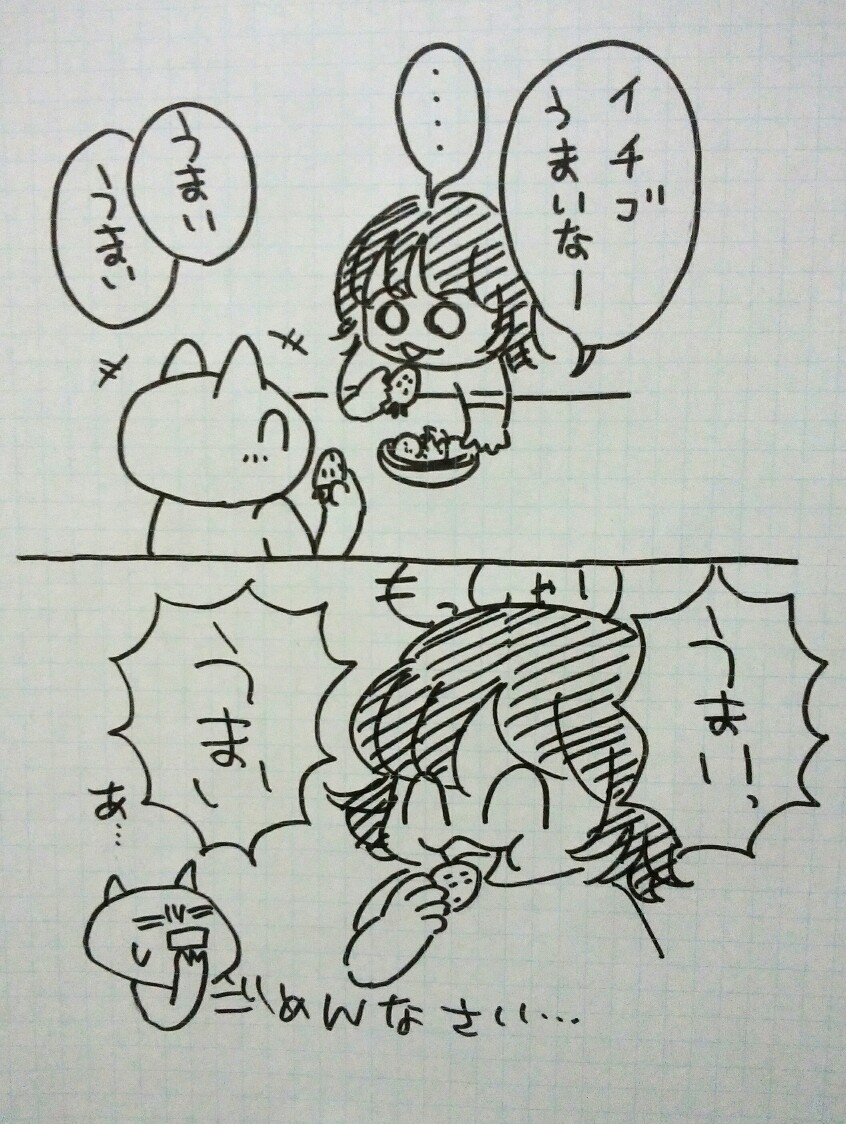 イチゴ
うまいなー
‥‥
うまい
うまい
うまい
うまい
あ…
ごめんなさい…